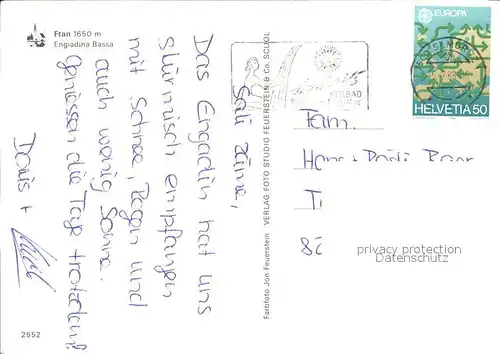 Ftan 1650 m
Engiadina Bassa
Sali Zäme,
Das Engadin hat uns
stürmisch empfangen
mit Schnee, Regen und
auch wenig Sonne.
geniessen die Tage trotzdem!
Doris +
2552
Farbfoto Jon Feuerstein VERLAG FOTO STUDIO FEUERSTEIN & Co. SCUOL
HEILBAD
EUROPA
HELVETIA 50
Fam.
8
privacy protection
Datenschutz